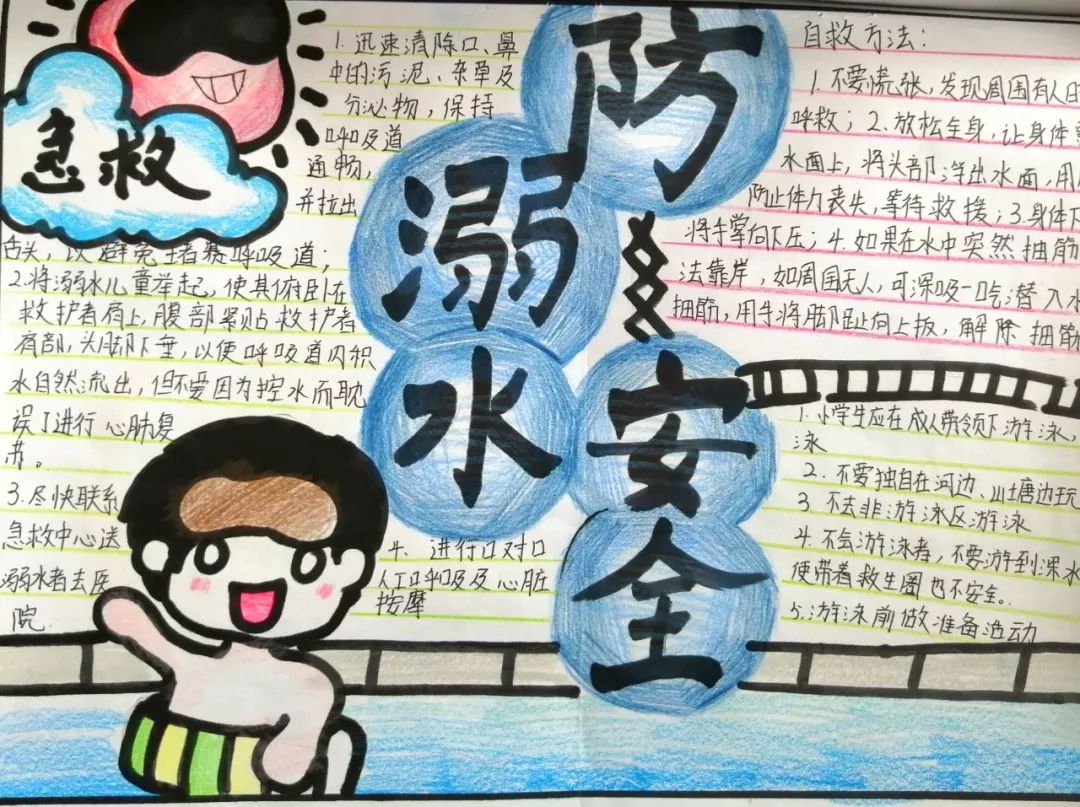 急救
1. 迅速清除口、鼻
中的污泥、杂草及
分泌物，保持
呼吸道
通畅，
并拉出
舌头，以避免堵塞呼吸道；
2.将溺水儿童举起，使其俯卧在
救护者肩上，腹部紧贴救护者
肩部，头脚下垂，以使呼吸道内积
水自然流出，但不要因为控水而耽
误了进行心肺复
苏。
3.尽快联系
急救中心送
溺水者去医
院.
4. 进行口对口
人工呼吸及心脏
按摩
防
溺
水
安
全
自救方法：
1. 不要慌张，发现周围有人
呼救；2. 放松全身，让身体
水面上，将头部浮出水面，用
防止体力丧失，等待救援；3.身体下
将手掌向下压；4.如果在水中突然抽筋
法靠岸，如周围无人，可深吸一吃潜入水
抽筋，用手将脚趾向上扳，解除抽筋
1. 小学生应在成人带领下游泳，
泳
2. 不要独自在河边、山塘边玩
3. 不去非游泳区游泳
4. 不会游泳者，不要游到深水
使带着救生圈也不安全。
5. 游泳前做准备运动